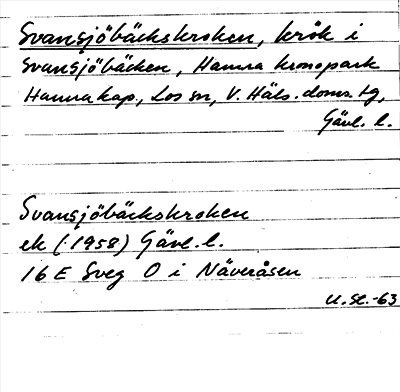 Svansjöbäckskroken, krök i
Svansjöbäcken, Hamra kronopark
Hamra kap., Los sn, V. Häls. doms. tg,
Gävl. l.
Svansjöbäckskroken
ek (1958) Gävl. l.
16 E Sveg O i Näveråsen
U. St. -63